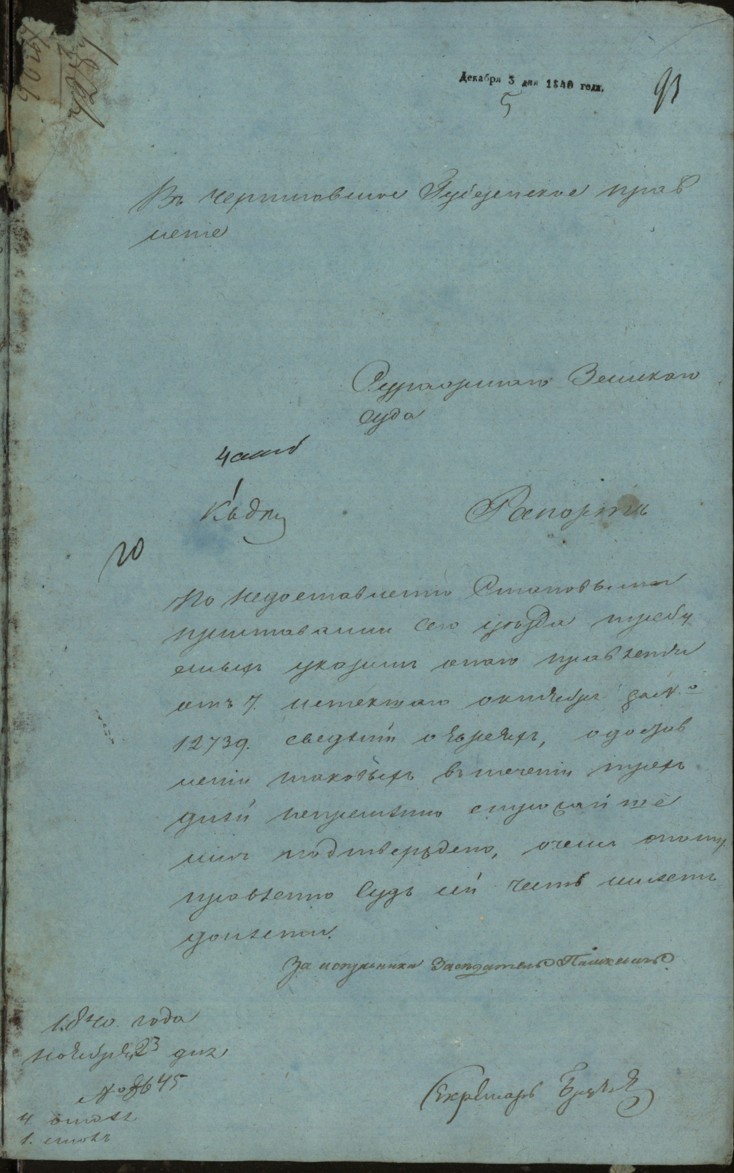 Декабря 3 дня 1840 года.
5
93
Въ Черниговское Губернское прав
ление
Суражскаго Земскаго
Суда
Къ делу
Рапортъ
По недоставлению Становыми
приставами сего уезда требу
емыхъ указомъ онаго правления
отъ 7. истекшаго октября за №
12739. сведений о евреяхъ, о достав
лении таковыхъ в течении трехъ
дней непременно
имъ подтверждено, о чемъ оному
правлению Судъ сей честь имеетъ
донести.
За исправника Заседатель
1840 года
Ноября 23 дня
№ 8645
4 столъ
1. столъ
Секретарь